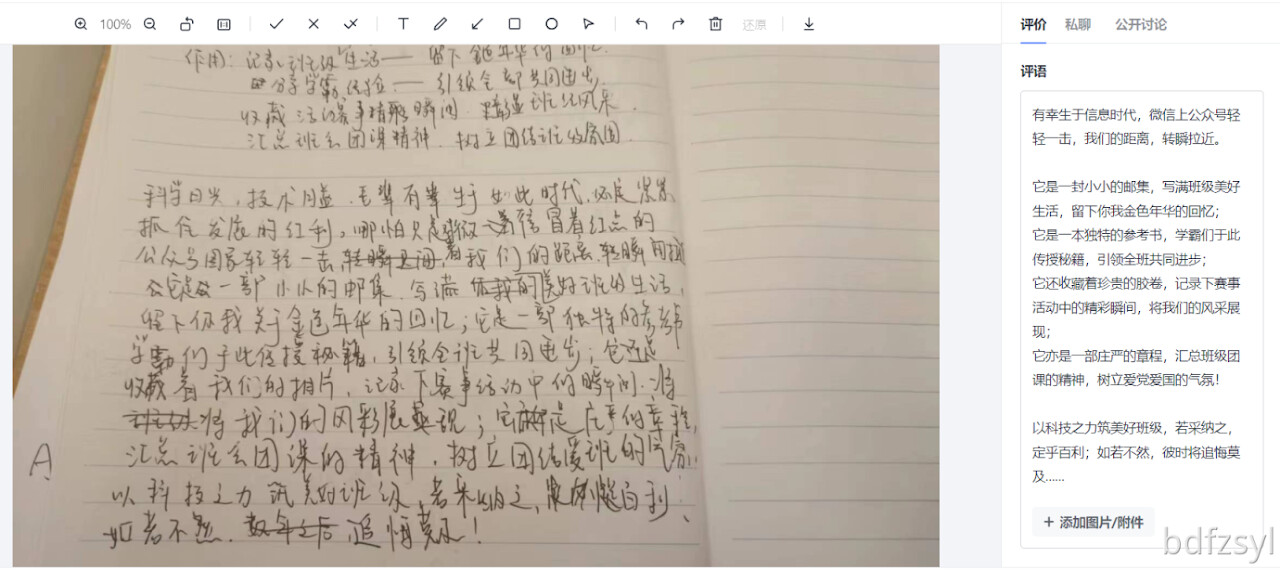 100%
T
还原
评价 私聊 公开讨论
评语
作用：记录班级生活——留下金色年华的回忆.
分享学霸经验——引领全部共同进步.
收藏活动赛事精彩瞬间.班级风采.
汇总班会团课精神.树立团结班级氛围.
科学日兴，技术日益.吾辈有幸生于如此时代，必定紧紧
抓住发展的红利，哪怕只是微信冒着红点的
公众号图家轻轻一击，我们的距离.转瞬间
一部小小的邮集.写满美好班级生活，
留下你我关于金色年华的回忆；它是一部独特的参考书
学霸们于此传授秘籍，引领全班共同进步；它还是
收藏着我们的相片，记录下赛事活动中的瞬间.将
将我们的风彩展现；它是庄严的章程，
汇总班会团课的精神，树立团结爱班的气氛.
以科技之力筑美好班级，若采纳之，百利、
如若不然.数年之后追悔莫及！
A
有幸生于信息时代，微信上公众号轻
轻一击，我们的距离，转瞬拉近。
它是一封小小的邮集，写满班级美好
生活，留下你我金色年华的回忆；
它是一本独特的参考书，学霸们于此
传授秘籍，引领全班共同进步；
它还收藏着珍贵的胶卷，记录下赛事
活动中的精彩瞬间，将我们的风采展
现；
它亦是一部庄严的章程，汇总班级团
课的精神，树立爱党爱国的气氛！
以科技之力筑美好班级，若采纳之，
定乎百利；如若不然，彼时将追悔莫
及……
+ 添加图片/附件
bdfzsyl